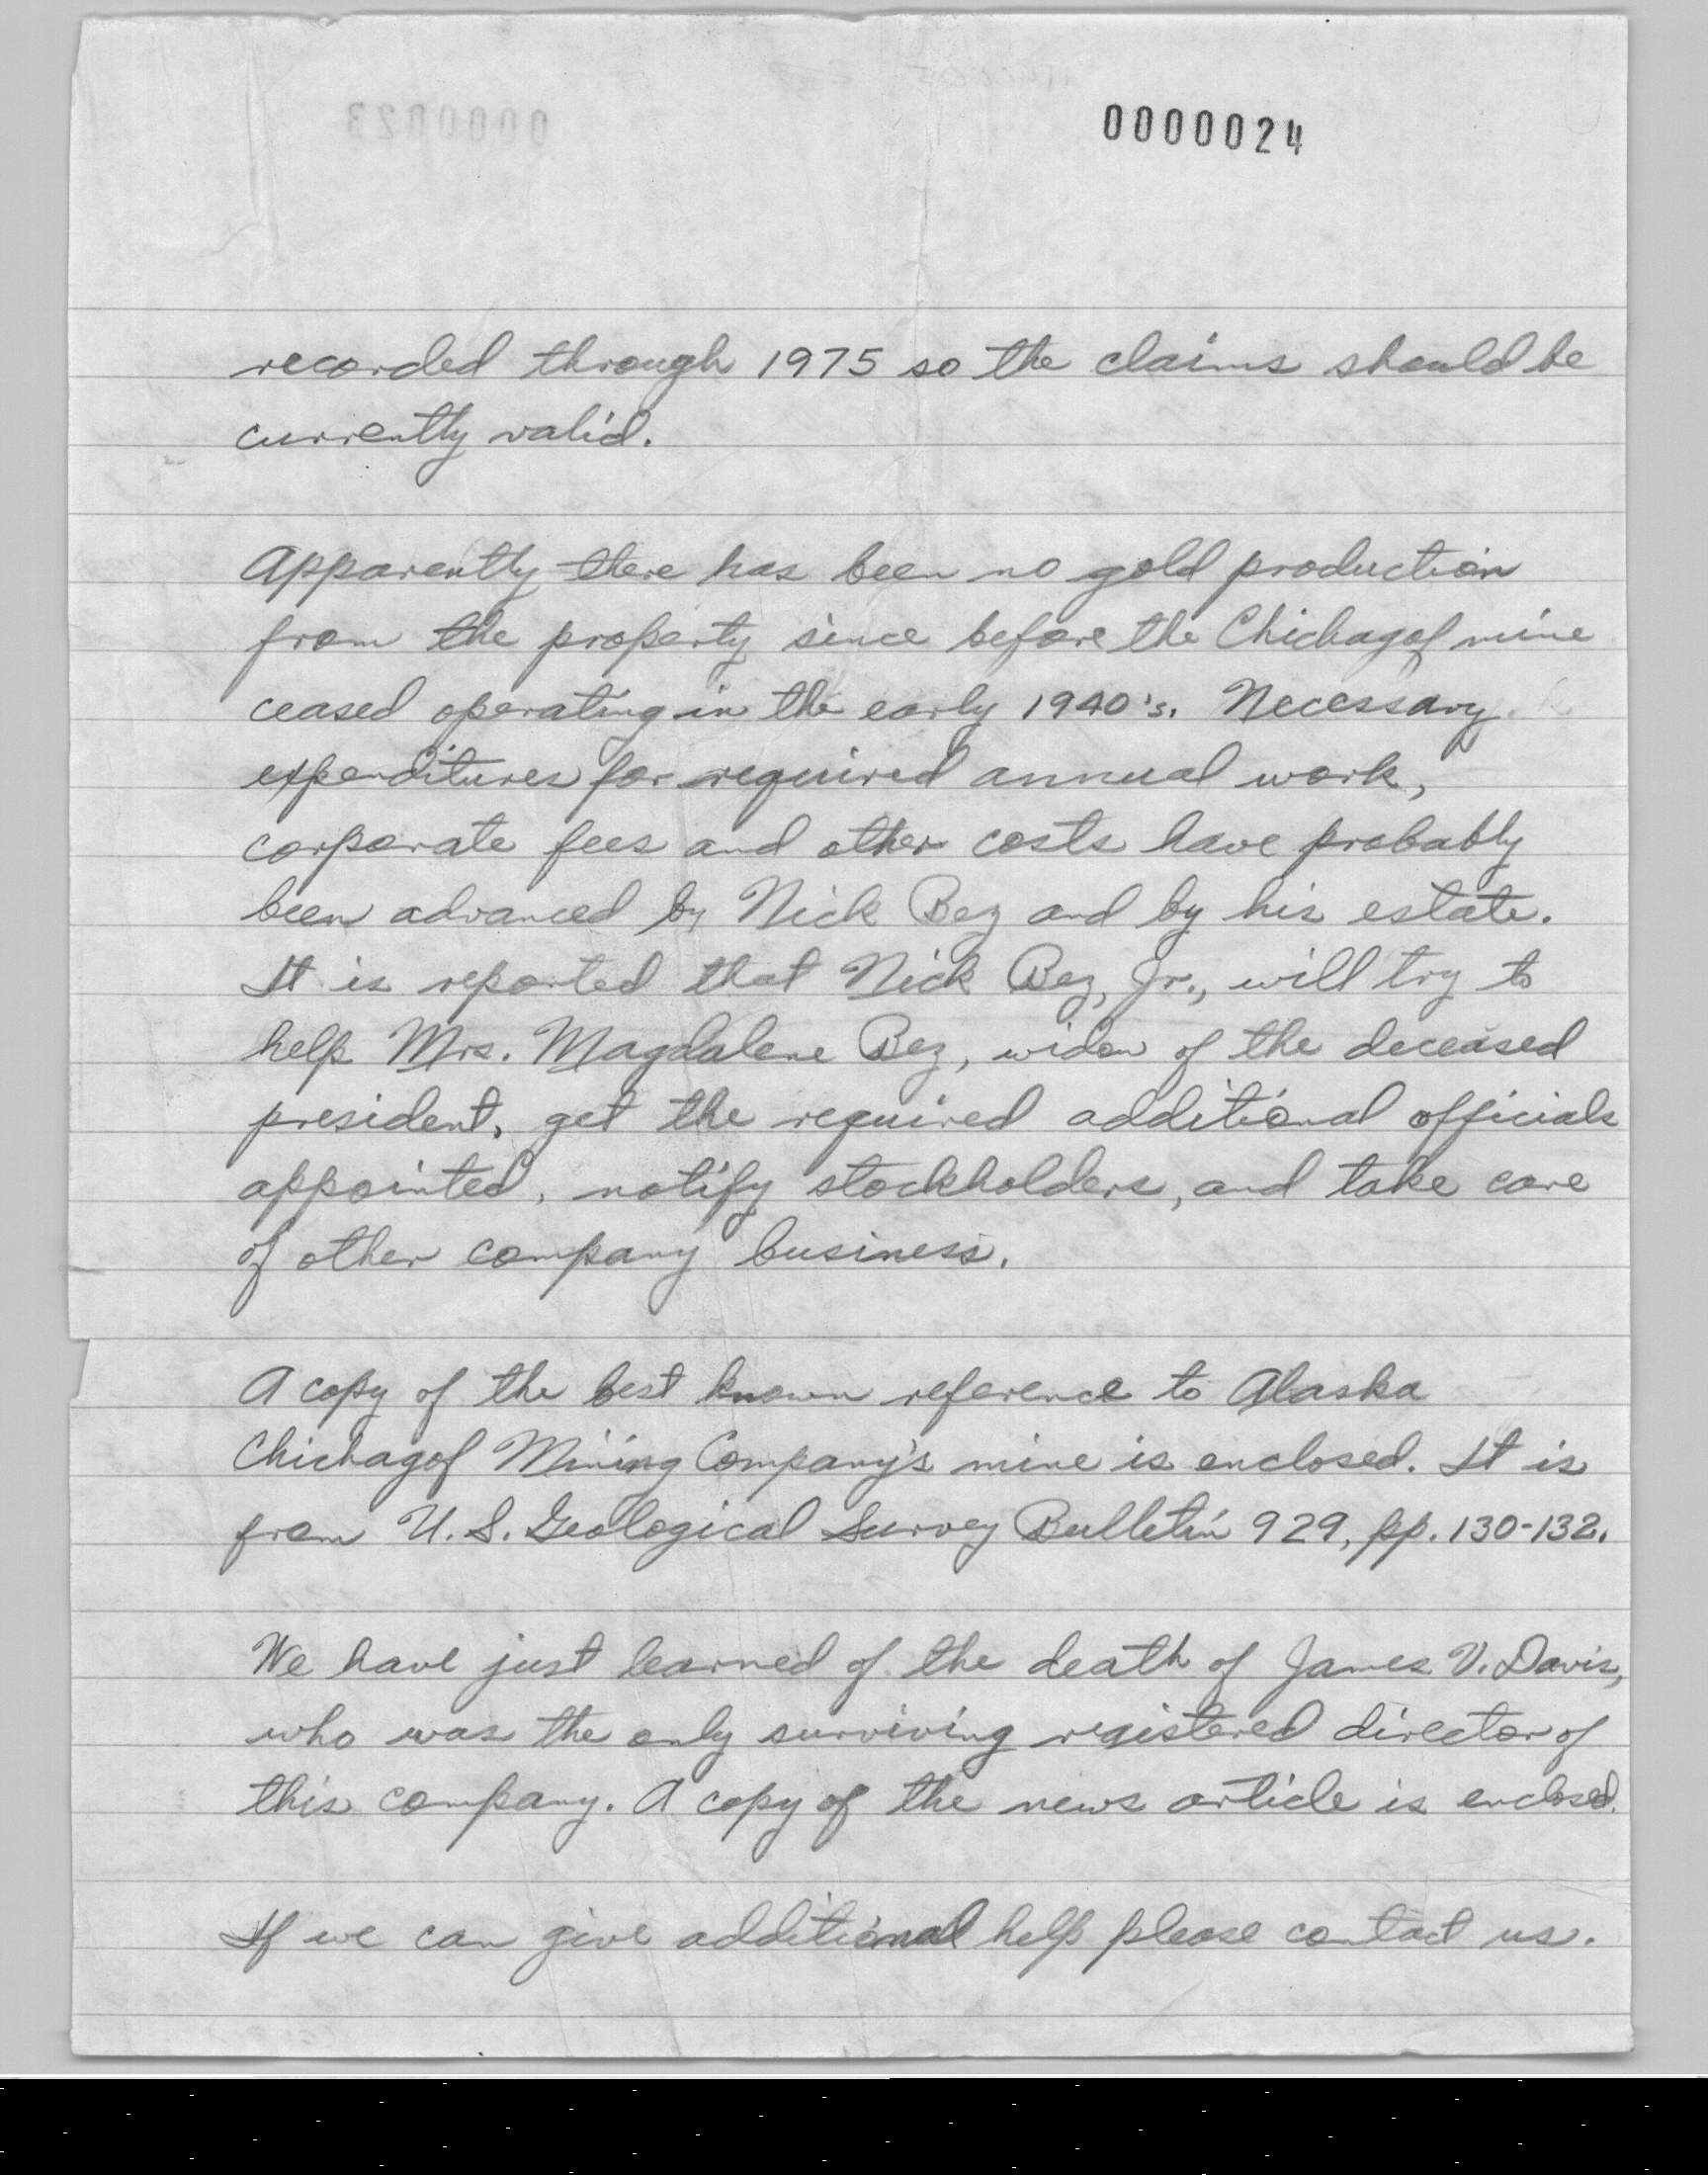 0000023
0000024
recorded through 1975 so the claims should be
currently valid.
Apparently there has been no gold production
from the property since before the Chichagof mine
ceased operating in the early 1940's. Necessary
expenditures for required annual work,
corporate fees and other costs have probably
been advanced by Nick Bez and by his estate.
It is reported that Nick Bez, Jr., will try to
help Mrs. Magdalene Bez, widow of the deceased
president, get the required additional officials
appointed, notify stockholders, and take care
of other company business.
A copy of the best known reference to Alaska
Chichagof Mining Company's mine is enclosed. It is
from U.S. Geological Survey Bulletin 929, pp. 130-132.
We have just learned of the death of James V. Davis,
who was the only surviving registered director of
this company. A copy of the news article is enclosed.
If we can give additional help please contact us.